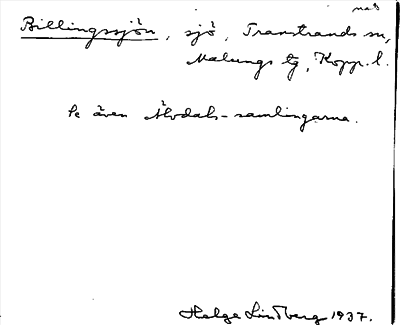 nas
Billingssjön, sjö, Transtrands sn,
Malungs tg, Kopp. l.
Se även Älvdals-samlingarna.
Helge Lindberg 1937.